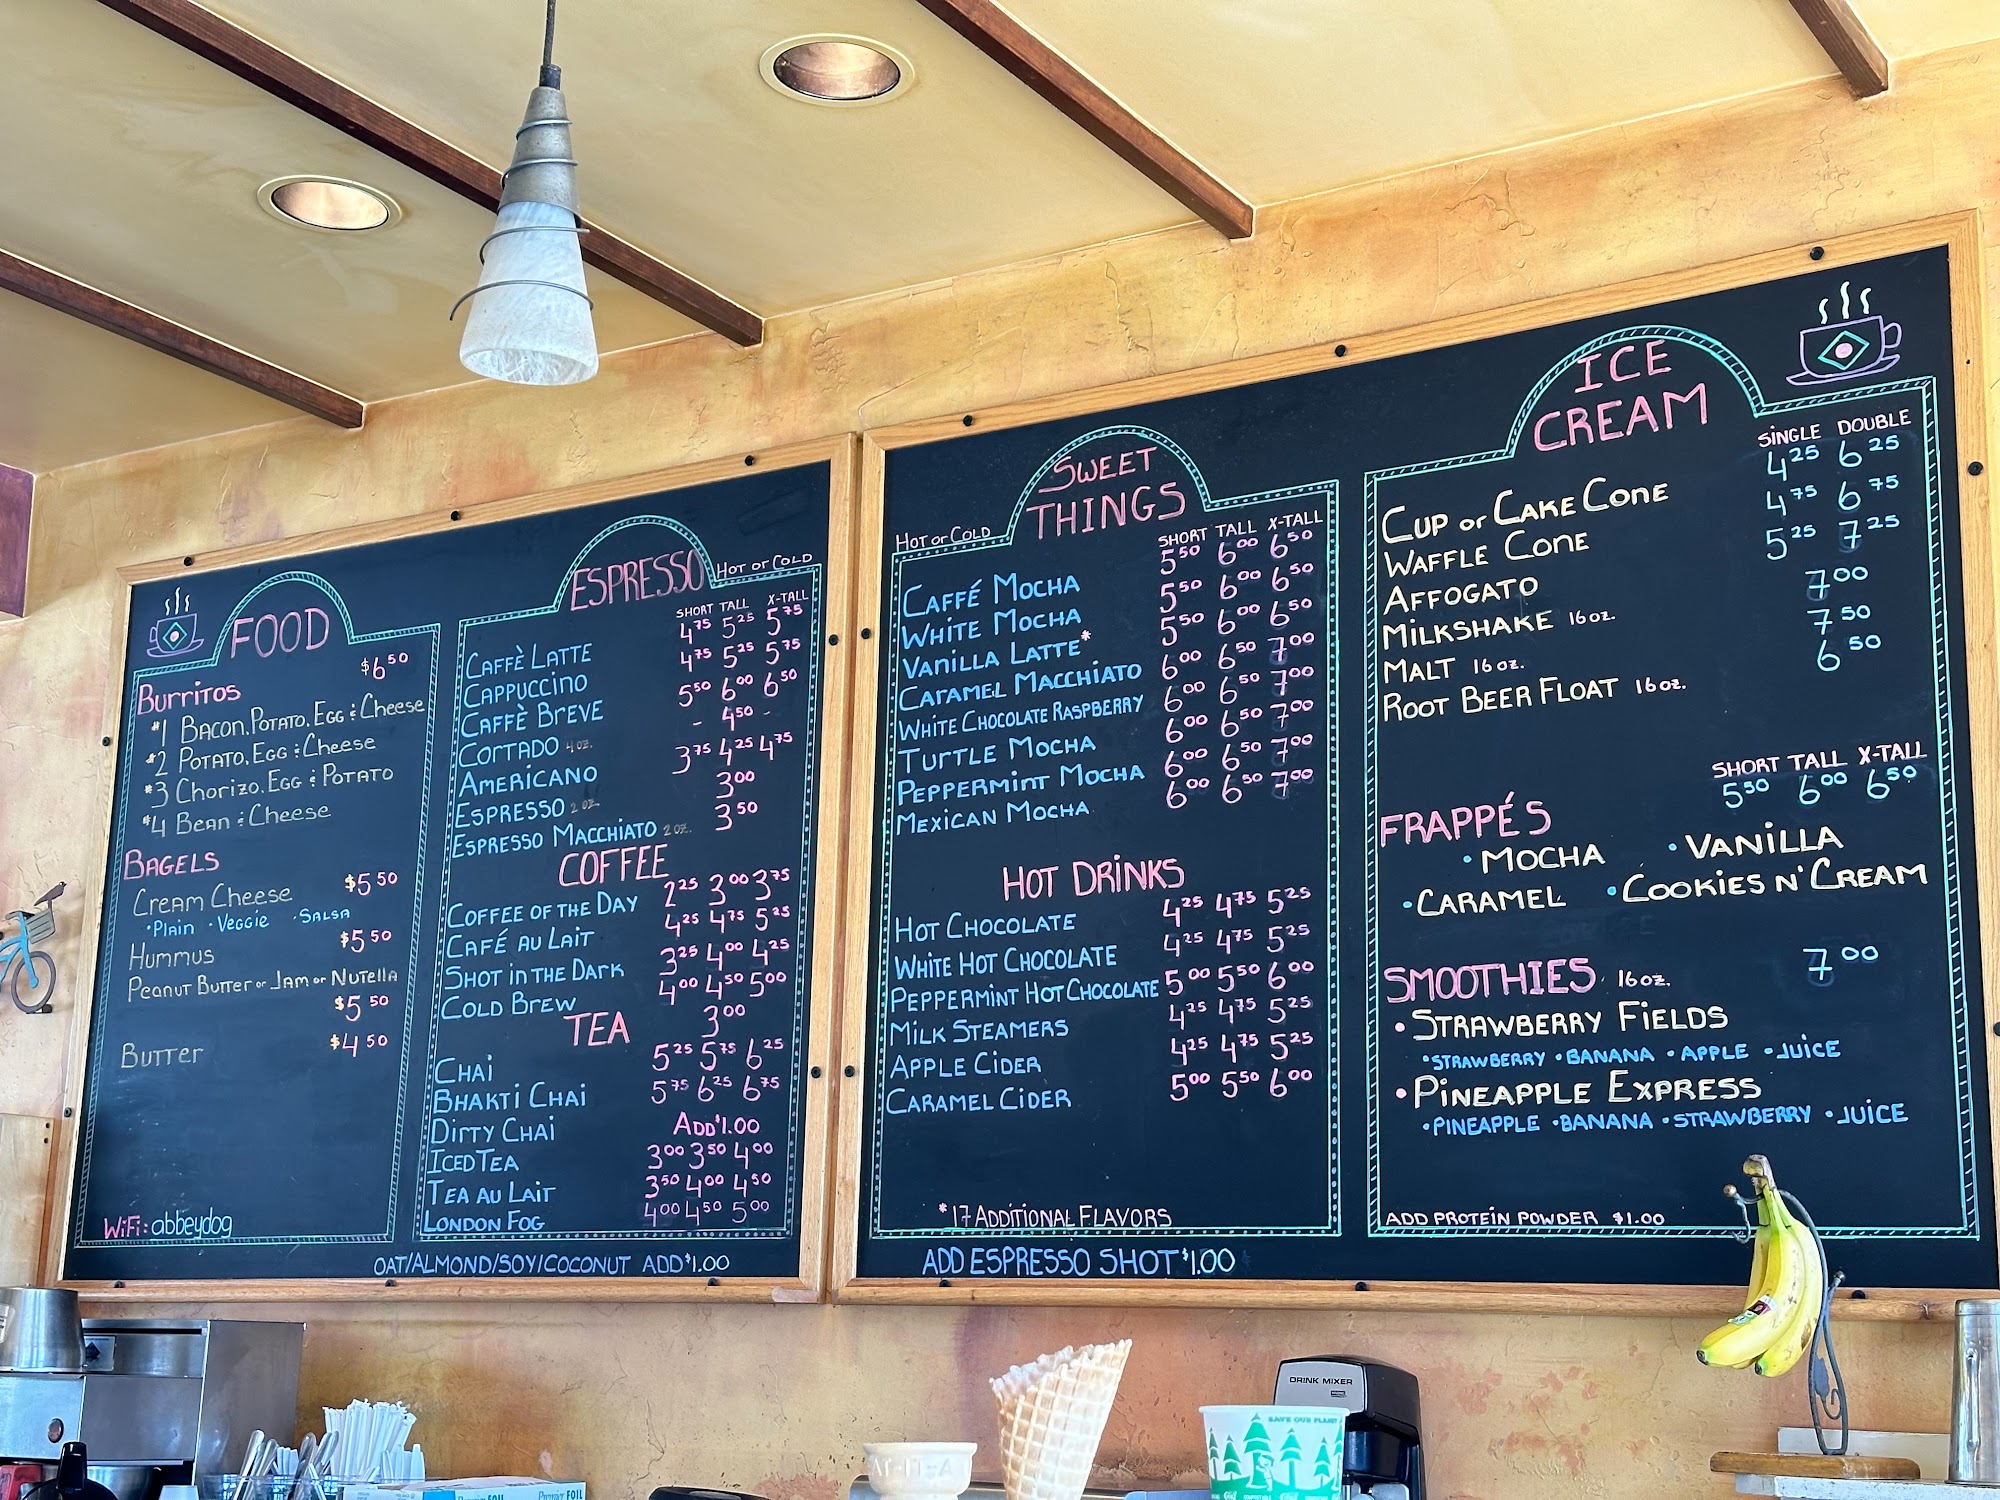 FOOD
$6 50
Burritos
#1 Bacon, Potato, Egg & Cheese
#2 Potato, Egg & Cheese
#3 Chorizo, Egg & Potato
#4 Bean & Cheese
BAGELS
Cream Cheese $5 50
• Plain • Veggie • Salsa
Hummus $5 50
Peanut Butter or Jam or Nutella
$5 50
Butter $4 50
WiFi: abbeydog
ESPRESSO HOT or COLD
SHORT TALL X-TALL
CAFFÈ LATTE 4 75 5 25 5 75
CAPPUCCINO 4 75 5 25 5 75
CAFFÈ BREVE 5 50 6 00 6 50
CORTADO 4 OZ. - 4 50 -
AMERICANO 3 75 4 25 4 75
ESPRESSO 2 OZ. 3 00
ESPRESSO MACCHIATO 2 OZ. 3 50
COFFEE
COFFEE OF THE DAY 2 25 3 00 3 75
CAFÉ AU LAIT 4 25 4 75 5 25
SHOT IN THE DARK 3 25 4 00 4 25
COLD BREW 4 00 4 50 5 00
TEA 3 00
CHAI 5 25 5 75 6 25
BHAKTI CHAI 5 75 6 25 6 75
DIRTY CHAI ADD $1.00
ICED TEA 3 00 3 50 4 00
TEA AU LAIT 3 50 4 00 4 50
LONDON FOG 4 00 4 50 5 00
OAT/ALMOND/SOY/COCONUT ADD $1.00
SWEET
THINGS
HOT or COLD
SHORT TALL X-TALL
CAFFÉ MOCHA 5 50 6 00 6 50
WHITE MOCHA 5 50 6 00 6 50
VANILLA LATTE* 5 50 6 00 6 50
CARAMEL MACCHIATO 6 00 6 50 7 00
WHITE CHOCOLATE RASPBERRY 6 00 6 50 7 00
TURTLE MOCHA 6 00 6 50 7 00
PEPPERMINT MOCHA 6 00 6 50 7 00
MEXICAN MOCHA 6 00 6 50 7 00
HOT DRINKS
HOT CHOCOLATE 4 25 4 75 5 25
WHITE HOT CHOCOLATE 4 25 4 75 5 25
PEPPERMINT HOT CHOCOLATE 5 00 5 50 6 00
MILK STEAMERS 4 25 4 75 5 25
APPLE CIDER 4 25 4 75 5 25
CARAMEL CIDER 5 00 5 50 6 00
*17 ADDITIONAL FLAVORS
ADD ESPRESSO SHOT $1.00
ICE
CREAM
SINGLE DOUBLE
CUP or CAKE CONE 4 25 6 25
WAFFLE CONE 4 75 6 75
AFFOGATO 5 25 7 25
MILKSHAKE 16 oz. 7 00
MALT 16 oz. 7 50
ROOT BEER FLOAT 16 oz. 6 50
SHORT TALL X-TALL
FRAPPÉS 5 50 6 00 6 50
• MOCHA • VANILLA
• CARAMEL • COOKIES N' CREAM
SMOOTHIES 16 oz. 7 00
• STRAWBERRY FIELDS
• STRAWBERRY • BANANA • APPLE • JUICE
• PINEAPPLE EXPRESS
• PINEAPPLE • BANANA • STRAWBERRY • JUICE
ADD PROTEIN POWDER $1.00
DRINK MIXER
SAVE OUR PLANET
Premier FOIL